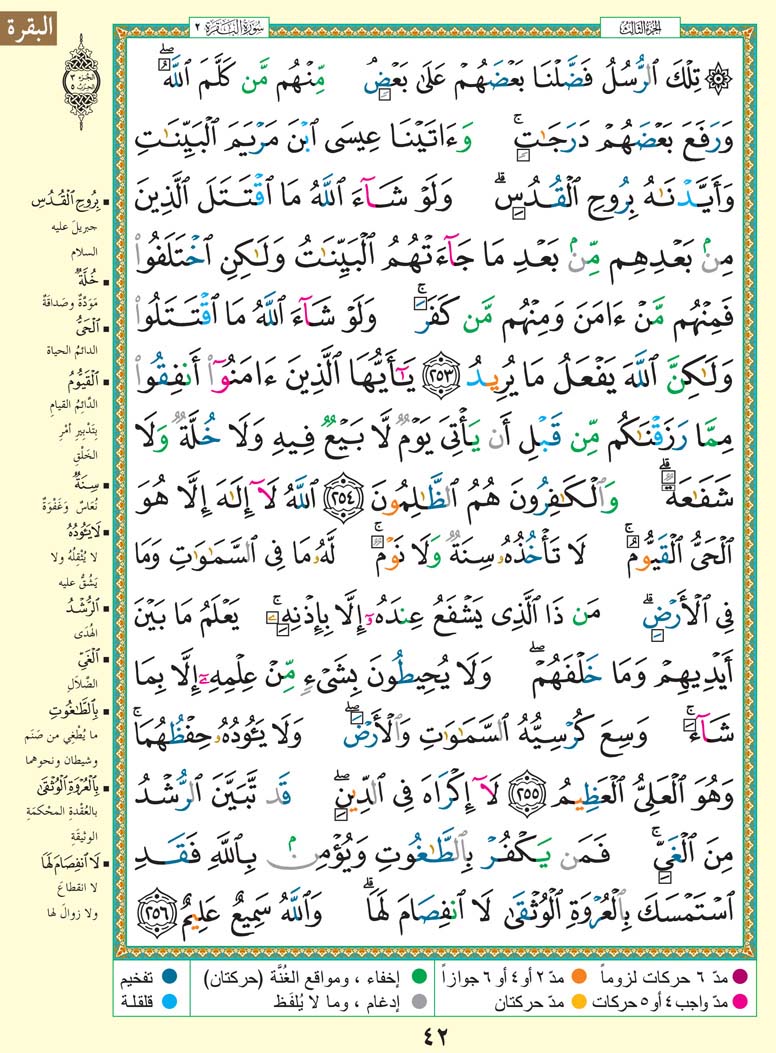 البقرة
الجزء الثالث
سورة البقرة ٢
الجزء ٣
الحزب ٥
۞ تِلْكَ ٱلرُّسُلُ فَضَّلْنَا بَعْضَهُمْ عَلَىٰ بَعْضٍۘ مِّنْهُم مَّن كَلَّمَ ٱللَّهُۖ
وَرَفَعَ بَعْضَهُمْ دَرَجَـٰتٍۚ وَءَاتَيْنَا عِيسَى ٱبْنَ مَرْيَمَ ٱلْبَيِّنَـٰتِ
وَأَيَّدْنَـٰهُ بِرُوحِ ٱلْقُدُسِۗ وَلَوْ شَآءَ ٱللَّهُ مَا ٱقْتَتَلَ ٱلَّذِينَ
مِنۢ بَعْدِهِم مِّنۢ بَعْدِ مَا جَآءَتْهُمُ ٱلْبَيِّنَـٰتُ وَلَـٰكِنِ ٱخْتَلَفُوا۟
فَمِنْهُم مَّنْ ءَامَنَ وَمِنْهُم مَّن كَفَرَۚ وَلَوْ شَآءَ ٱللَّهُ مَا ٱقْتَتَلُوا۟
وَلَـٰكِنَّ ٱللَّهَ يَفْعَلُ مَا يُرِيدُ ٢٥٣ يَـٰٓأَيُّهَا ٱلَّذِينَ ءَامَنُوٓا۟ أَنفِقُوا۟
مِمَّا رَزَقْنَـٰكُم مِّن قَبْلِ أَن يَأْتِىَ يَوْمٌ لَّا بَيْعٌ فِيهِ وَلَا خُلَّةٌ وَلَا
شَفَـٰعَةٌۗ وَٱلْكَـٰفِرُونَ هُمُ ٱلظَّـٰلِمُونَ ٢٥٤ ٱللَّهُ لَآ إِلَـٰهَ إِلَّا هُوَ
ٱلْحَىُّ ٱلْقَيُّومُۚ لَا تَأْخُذُهُۥ سِنَةٌ وَلَا نَوْمٌۚ لَّهُۥ مَا فِى ٱلسَّمَـٰوَٰتِ وَمَا
فِى ٱلْأَرْضِۗ مَن ذَا ٱلَّذِى يَشْفَعُ عِندَهُۥٓ إِلَّا بِإِذْنِهِۦۚ يَعْلَمُ مَا بَيْنَ
أَيْدِيهِمْ وَمَا خَلْفَهُمْۖ وَلَا يُحِيطُونَ بِشَىْءٍ مِّنْ عِلْمِهِۦٓ إِلَّا بِمَا
شَآءَۚ وَسِعَ كُرْسِيُّهُ ٱلسَّمَـٰوَٰتِ وَٱلْأَرْضَۖ وَلَا يَـُٔودُهُۥ حِفْظُهُمَاۚ
وَهُوَ ٱلْعَلِىُّ ٱلْعَظِيمُ ٢٥٥ لَآ إِكْرَاهَ فِى ٱلدِّينِۖ قَد تَّبَيَّنَ ٱلرُّشْدُ
مِنَ ٱلْغَىِّۚ فَمَن يَكْفُرْ بِٱلطَّـٰغُوتِ وَيُؤْمِنۢ بِٱللَّهِ فَقَدِ
ٱسْتَمْسَكَ بِٱلْعُرْوَةِ ٱلْوُثْقَىٰ لَا ٱنفِصَامَ لَهَاۗ وَٱللَّهُ سَمِيعٌ عَلِيمٌ ٢٥٦
▪ بِرُوحِ ٱلْقُدُسِ
جبريلَ عليه
السلام
▪ خُلَّةٌ
مَوَدَّةٌ وصَداقَةٌ
▪ ٱلْحَىُّ
الدائمُ الحياة
▪ ٱلْقَيُّومُ
الدَّائِمُ القيامِ
بِتَدْبِيرِ أمْرِ
الخَلْقِ
▪ سِنَةٌ
نُعَاسٌ وَغَفْوَةٌ
▪ لَا يَـُٔودُهُۥ
لا يُثْقِلُهُ ولا
يَشُقُّ عليه
▪ ٱلرُّشْدُ
الهُدَى
▪ ٱلْغَىِّ
الضَّلالِ
▪ بِٱلطَّـٰغُوتِ
ما يُطْغِي من صَنَم
وشيطان ونحوهما
▪ بِٱلْعُرْوَةِ ٱلْوُثْقَىٰ
بالعُقْدة المحْكمَةِ
الوثيقَةِ
▪ لَا ٱنفِصَامَ لَهَا
لا انقطاعَ
ولا زوالَ لها
مدّ ٦ حركات لزوماً مدّ ٢ أو ٤ أو ٦ جوازاً إخفاء ، ومواقع الغُنَّة (حركتان) تفخيم
مدّ واجب ٤ أو ٥ حركات مدّ حركتان إدغام ، وما لا يُلفَظ قلقلة
٤٢